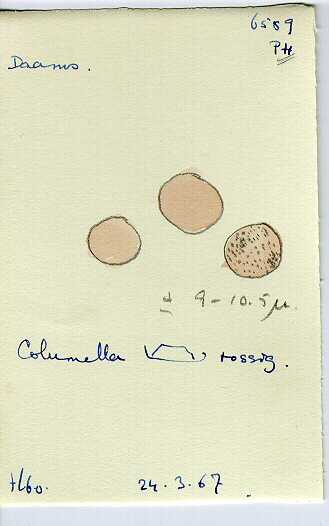 6589
PH
Daams.
± 9-10.5 µ.
Columella rossig.
24.3.67